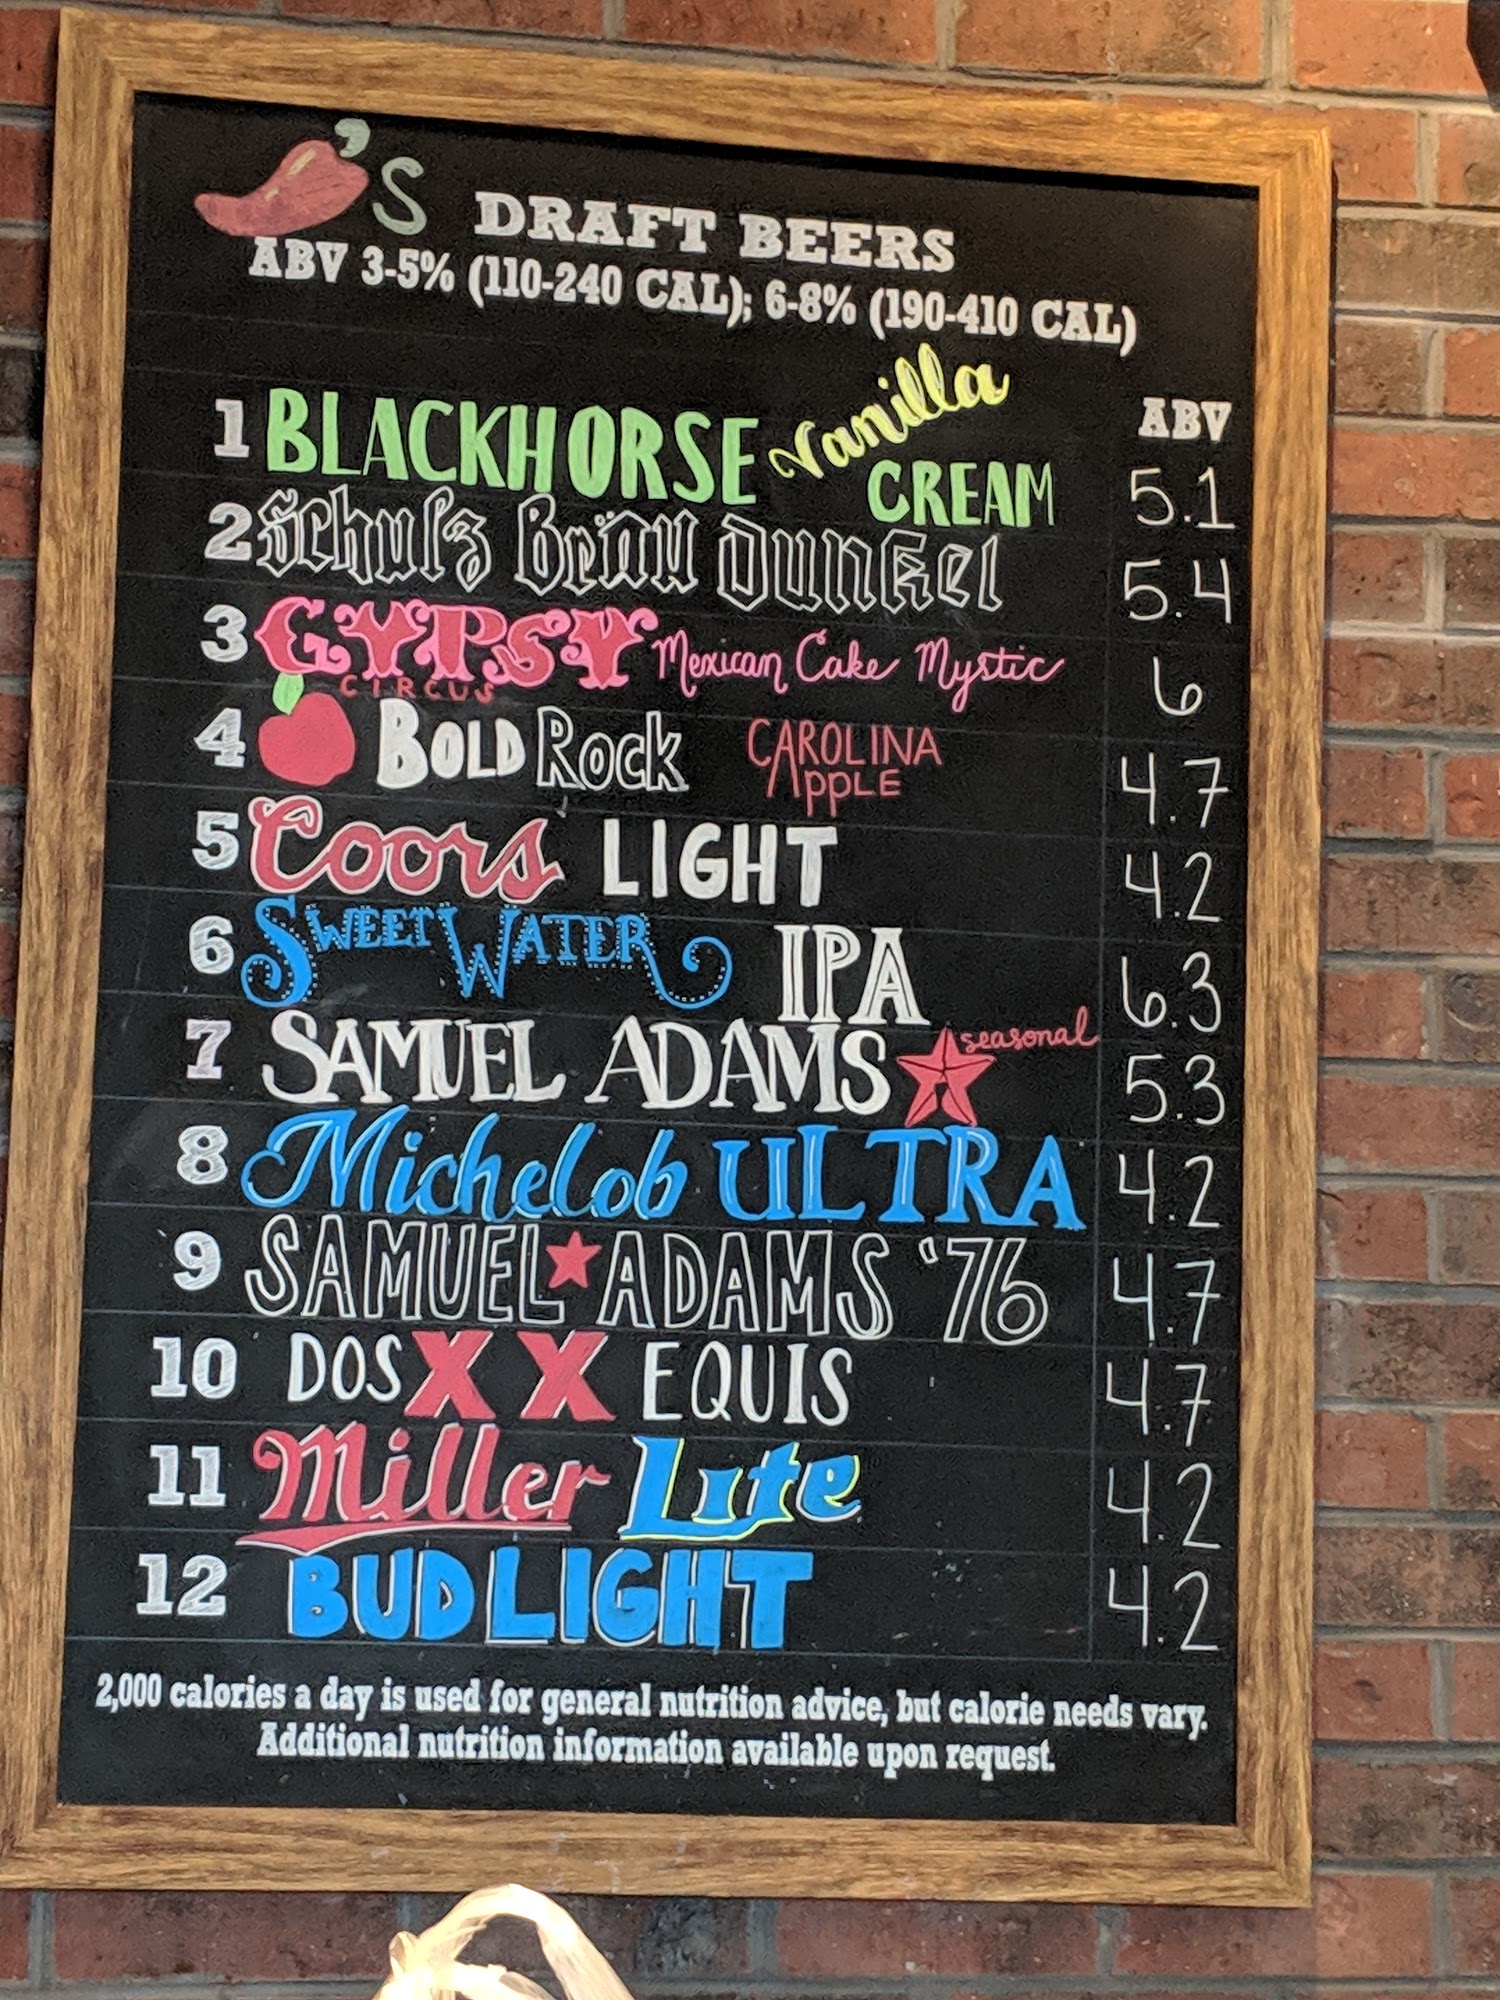 's DRAFT BEERS
ABV 3-5% (110-240 CAL); 6-8% (190-410 CAL)
ABV
1 BLACKHORSE Vanilla CREAM 5.1
2 Schulz Bräu Dunkel 5.4
3 GYPSY CIRCUS Mexican Cake Mystic 6
4 BOLD ROCK CAROLINA APPLE 4.7
5 Coors LIGHT 4.2
6 SWEETWATER IPA 6.3
7 SAMUEL ADAMS seasonal 5.3
8 Michelob ULTRA 4.2
9 SAMUEL ADAMS '76 4.7
10 DOS XX EQUIS 4.7
11 Miller Lite 4.2
12 BUD LIGHT 4.2
2,000 calories a day is used for general nutrition advice, but calorie needs vary.
Additional nutrition information available upon request.